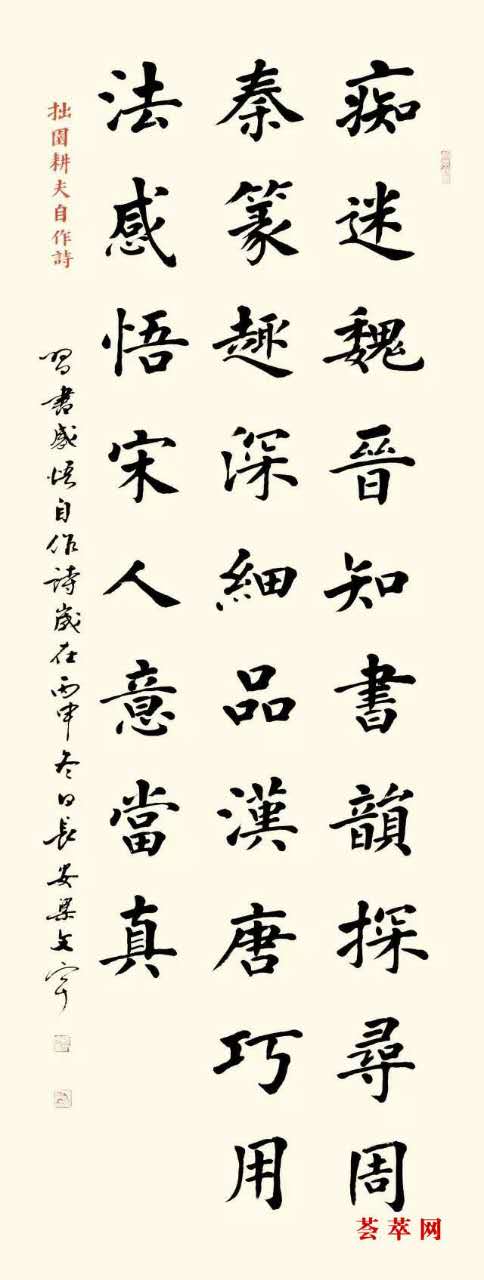 痴迷魏晉知書韻探尋周
秦篆趣深細品漢唐巧用
法感悟宋人意當真
拙園耕夫自作詩
習書感悟自作詩歲在丙申冬日長安梁文寧
荟萃网